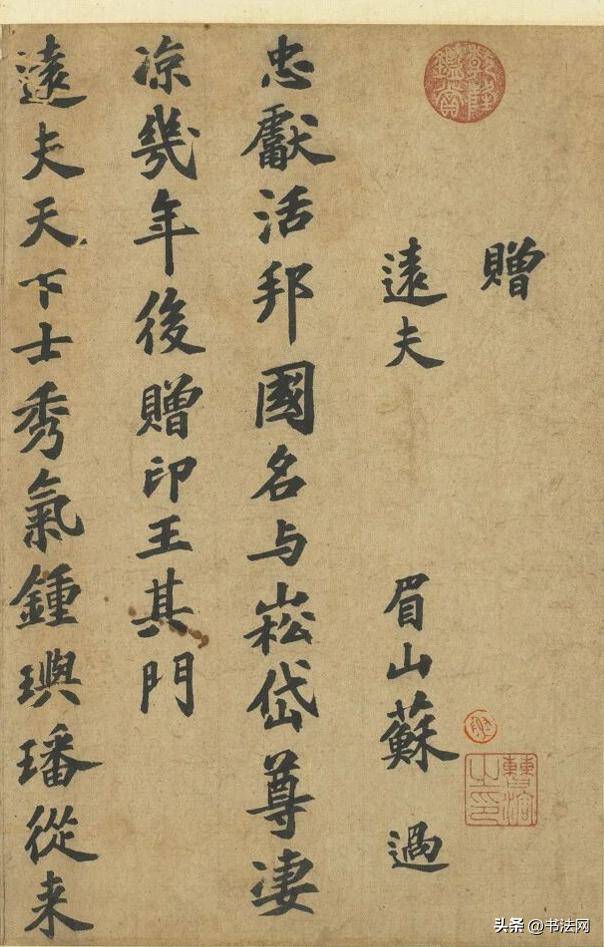 贈
遠夫 眉山蘇過
忠獻活邦國名与崧岱尊凄
凉幾年後贈印王其門
遠夫天下士秀氣鍾璵璠從来
乾隆鑑賞
头条 @书法网